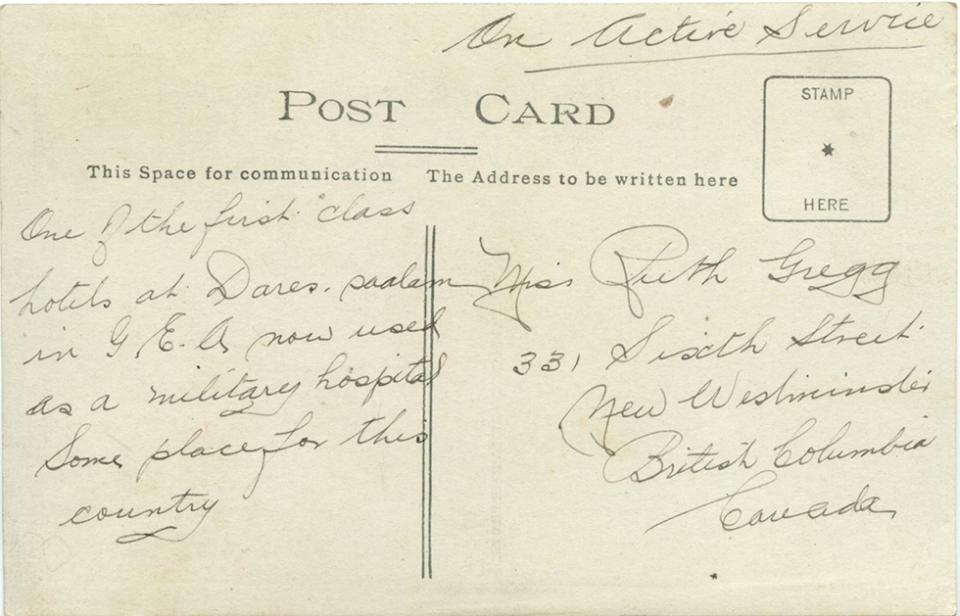 On Active Service
POST CARD
STAMP
HERE
This Space for communication
The Address to be written here
One of the first class
hotels at Dares. saalam
in G. E. A. now used
as a military hospital
Some place for this
country
Miss Ruth Gregg
331 Sixth Street
New Westminster
British Columbia
Canada